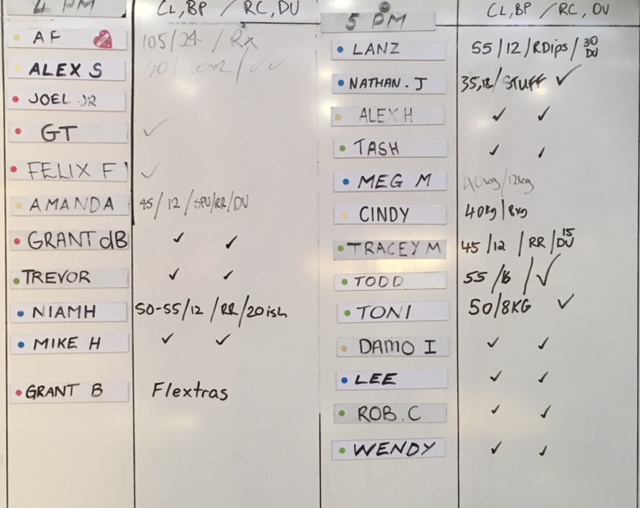 4 PM CL,BP / RC, DU
AF 105/24 / Rx
ALEX S
JOEL JR
GT ✓
FELIX F ✓
AMANDA 45 / 12 / SPU/RR/DU
GRANT dB ✓ ✓
TREVOR ✓ ✓
NIAMH 50-55/12 / RR/20ish
MIKE H ✓ ✓
GRANT B Flextras
5 PM CL,BP / RC, DU
LANZ 55 / 12 / RDips / 30 DU
NATHAN.J 35,12/ Stuff ✓
ALEX H ✓ ✓
TASH ✓ ✓
MEG M 40kg/12kg
CINDY 40kg / 8kg
TRACEY M 45 / 12 / RR / 15 DU
TODD 55 / ✓
TONI 50/8KG ✓
DAMO I ✓ ✓
LEE ✓ ✓
ROB.C ✓ ✓
WENDY ✓ ✓